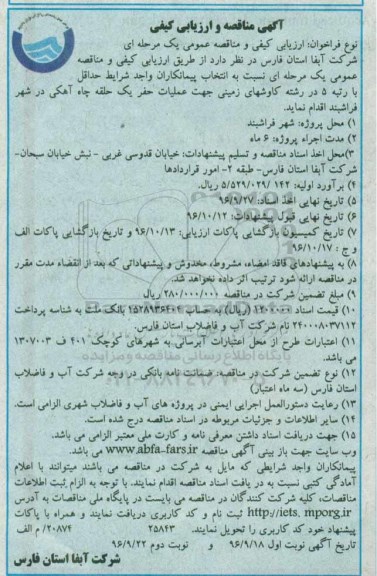 آگهی مناقصه و ارزیابی کیفی
نوع فراخوان: ارزیابی کیفی و مناقصه عمومی یک مرحله ای
شرکت آبفا استان فارس در نظر دارد از طریق ارزیابی کیفی و مناقصه
عمومی یک مرحله ای نسبت به انتخاب پیمانکاران واجد شرایط حداقل
با رتبه ۵ در رشته کاوشهای زمینی جهت عملیات حفر یک حلقه چاه آهکی در شهر
فراشبند اقدام نماید.
۱) محل پروژه: شهر فراشبند
۲) مدت اجراء پروژه: ۶ ماه
۳)محل اخذ اسناد مناقصه و تسلیم پیشنهادات: خیابان قدوسی غربی - نبش خیابان سبحان-
شرکت آبفا استان فارس- طبقه ۲- امور قراردادها
۴) برآورد اولیه: ۵/۵۲۹/۰۲۹/۱۴۲ ریال.
۵) تاریخ نهایی اخذ اسناد: ۹۶/۹/۲۷
۶) تاریخ نهایی قبول پیشنهادات: ۹۶/۱۰/۱۲
۷) تاریخ کمیسیون بازگشایی پاکات ارزیابی: ۹۶/۱۰/۱۳ و تاریخ بازگشایی پاکات الف
و ج : ۹۶/۱۰/۱۷
۸) به پیشنهادهای فاقد امضاء، مشروط، مخدوش و پیشنهاداتی که بعد از انقضاء مدت مقرر
در مناقصه ارائه شود ترتیب اثر داده نخواهد شد.
۹) مبلغ تضمین شرکت در مناقصه ۲۸۰/۰۰۰/۰۰۰ ریال
۱۰) قیمت اسناد ۱۲۰۰۰۰۰ (ریال) به حساب بانک ملت به شناسه پرداخت
۲۴۰۰۰۸۰۳۷۱۱۲ نام شرکت آب و فاضلاب استان فارس.
۱۱) اعتبارات طرح از محل اعتبارات آبرسانی به شهرهای کوچک ۴۰۱ ف ۱۳۰۷۰۰۳
می باشد.
۱۲) نوع تضمین شرکت در مناقصه: ضمانت نامه بانکی در وجه شرکت آب و فاضلاب
استان فارس (سه ماه اعتبار)
۱۳) رعایت دستورالعمل اجرایی ایمنی در پروژه های آب و فاضلاب شهری الزامی است.
۱۴) سایر اطلاعات و جزئیات مربوطه در اسناد مناقصه درج شده است.
۱۵) جهت دریافت اسناد داشتن معرفی نامه و کارت ملی معتبر الزامی می باشد.
وب سایت جهت باز بینی آگهی مناقصه www.abfa-fars.ir می باشد.
پیمانکاران واجد شرایطی که مایل به شرکت در مناقصه می باشند میتوانند با اعلام
آمادگی کتبی نسبت به در یافت اسناد مناقصه اقدام نمایند. با توجه به الزام ثبت اطلاعات
مناقصات، کلیه شرکت کنندگان در مناقصه می بایست در پایگاه ملی مناقصات به آدرس
http://iets. mporg.ir ثبت نام و کد کاربری دریافت نمایند و همراه با پاکات
پیشنهاد خود کد کاربری را تحویل نمایند. ۲۵۸۴۳ ۲۰۸۷۴/ م الف
تاریخ آگهی نوبت اول ۹۶/۹/۱۸ و نوبت دوم ۹۶/۹/۲۲
شرکت آبفا استان فارس